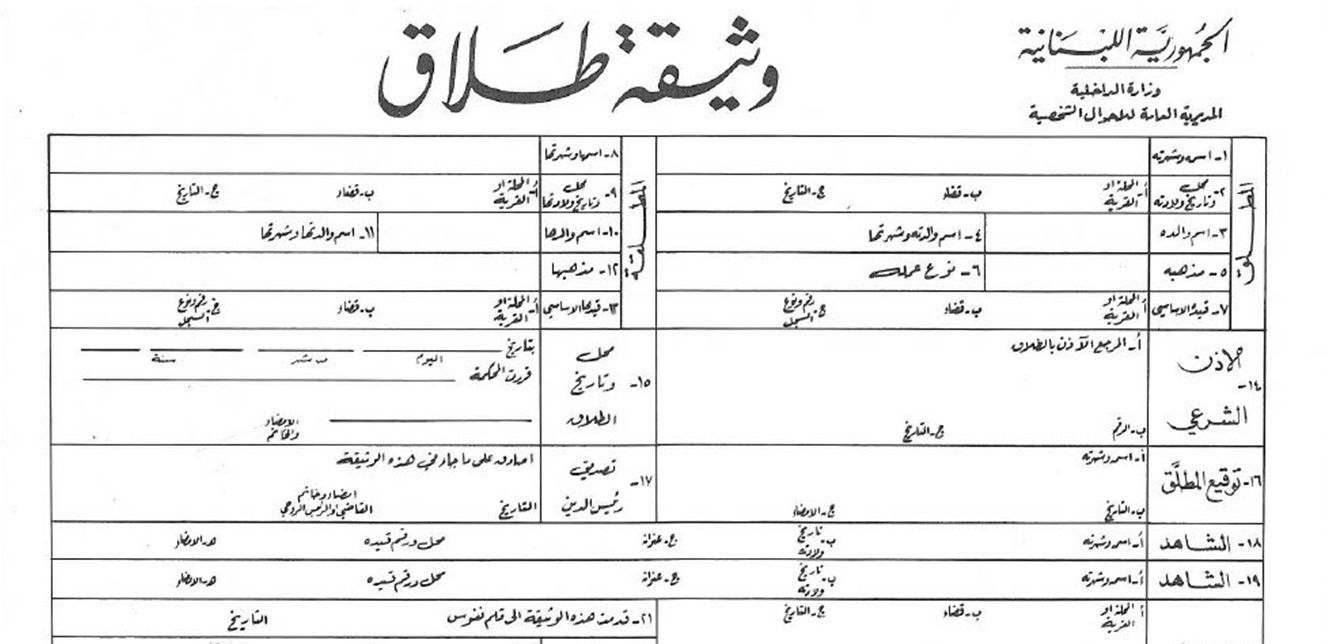 الجمهورية اللبنانية
وزارة الداخلية
المديرية العامة للأحوال الشخصية
وثيقة طلاق
المطلق
١- اسمه وشهرته
٢- محل وتاريخ ولادته
أ- المحلة او القرية
ب- قضاء
ج- التاريخ
٣- اسم والده
٤- اسم والدته وشهرتها
٥- مذهبه
٦- نوع عمله
٧- قيده الاساسي
أ- المحلة او القرية
ب- قضاء
ج- رقم ونوع السجل
المطلقة
٨- اسمها وشهرتها
٩- محل وتاريخ ولادتها
أ- المحلة او القرية
ب- قضاء
ج- التاريخ
١٠- اسم والدها
١١- اسم والدتها وشهرتها
١٢- مذهبها
١٣- قيدها الاساسي
أ- المحلة او القرية
ب- قضاء
ج- رقم ونوع السجل
١٤- الاذن الشرعي
أ- المرجع الآذن بالطلاق
ب- الرقم
ج- التاريخ
١٥- محل وتاريخ الطلاق
بتاريخ
اليوم
شهر
سنة
قررت المحكمة
الامضاء والخاتم
١٦- توقيع المطلق
أ- اسم وشهرته
ب- التاريخ
ج- الامضاء
١٧- تصديق رئيس الدين
اصادق على ما جاء في هذه الوثيقة
التاريخ
امضاء وخاتم
القاضي او الرئيس الروحي
١٨- الشاهد
أ- اسم وشهرته
ب- تاريخ ولادته
ج- عنوانه
محل ورقم قيده
هـ- الامضاء
١٩- الشاهد
أ- اسم وشهرته
ب- تاريخ ولادته
ج- عنوانه
محل ورقم قيده
هـ- الامضاء
أ- المحلة او القرية
ب- قضاء
ج- التاريخ
٢١- قدمت هذه الوثيقة الى قلم نفوس
التاريخ